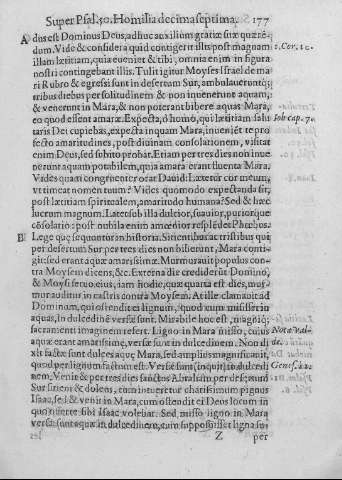 Super Psal. 50. Homilia decimaseptima. 177
A dus est Dominus Deus, adhuc auxilium gratiæ suæ quære-
dum. Vide & considera quid contigerit illis post magnam 1. Cor. 10.
illam lætitiam, quia eueniet & tibi, omnia enim in figura
nostri contingebant illis. Tulit igitur Moyses Israel de ma
ri Rubro & egressi sunt in desertum Sur, ambulaueruntq;
tribus diebus per solitudinem & non inuenerunt aquam:
& venerunt in Mara, & non poterant bibere aquas Mara,
eo quod essent amaræ. Expecta, ô homo, qui lætitiam salu Iob cap. 7.
taris Dei cupiebas, expecta inquam Mara, inueniet te pro
fecto amaritudines, post diuinam consolationem, visitat
enim Deus, sed subito probat. Etiam per tres dies non inue
nerunt aquam potabilem, qui amara erant fluenta Mara,
Vides quam congruenter orat Dauid: Lætetur cor meum,
vt timeat nomen tuum? Vides quomodo expectanda sit,
post lætitiam spiritualem, amaritudo humana? Sed & hæc
lucrum magnum. Latet sub illa dulcior, suauior, puriorque
cōsolatio: post nubila enim amœnior resplēdet Phœbus.
B Lege quę sequuntur in historia. Sitientibus ac tristibus qui
per desertum Sur per tres dies non biberunt, Mara conti-
git: sed erant aquæ amarissimæ. Murmurauit populus con-
tra Moysem dicens, &c. Externa die crediderūt Domino,
& Moysi seruo eius, iam hodie, quæ quarta est dies, mur-
mor auditur in castris contra Moysem. At ille clamauit ad
Dominum, qui ostendit ei lignum, quod cum misisset in
aquas, In dulcedinē versæ sunt. Mirabile hoc est, magniq;
sacramenti imaginem refert. Ligno in Mara misso, cuius Nota Val-
aquæ erant amarissimę, versæ sunt in dulcedinem. Non di de.
xit factæ sunt dulces aquę Mara, sed amplius magnificauit,
quod per lignum factum est. Versæ sunt (inquit) in dulcedi Genes. 22.
nem, Venit & per tres dies sanctus Abraham per desertum
Sur sitient & dolens, cum interficere charissimum pignus
Isaac, sed & venit in Mara, cum ostendit ei Deus locum in
quo offerre sibi Isaac volebat. Sed misso ligno in Mara
versæ sunt aquæ in dulcedinem, cum supposuisset ligna su-
Z per